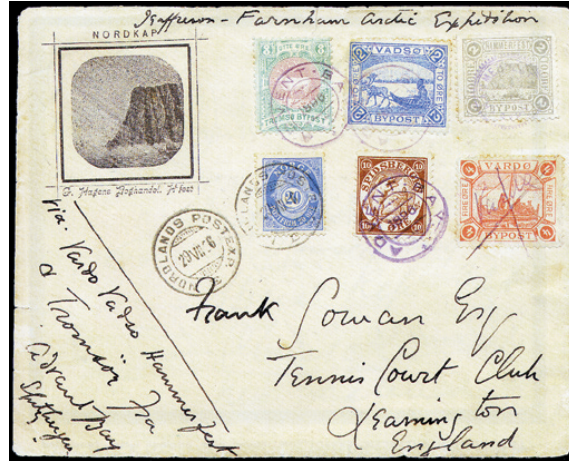 Jefferson - Farnham Arctic Expedition
NORDKAP
D. Hagens Boghandel. H'fest
VADSØ
BYPOST
HAMMERFEST
BYPOST
ADVENT BAY
1896
20
SPIDSBERGEN
ADVENT BAY
1896
VARDØ
FIRE ØRE
BYPOST
NORDLANDS POSTEXP.
20 VII 96
via. Vardo Vadso Hammerfest
& Tromsöe via
Advent Bay
Spitzbergen
Frank Sowan Esq
Tennis Court Club
Leamington
England